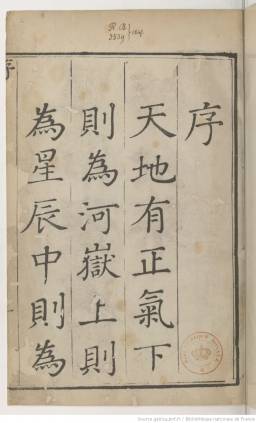 序
天地有正氣下
則為河嶽上則
為星辰中則為
Source gallica.bnf.fr / Bibliothèque nationale de France